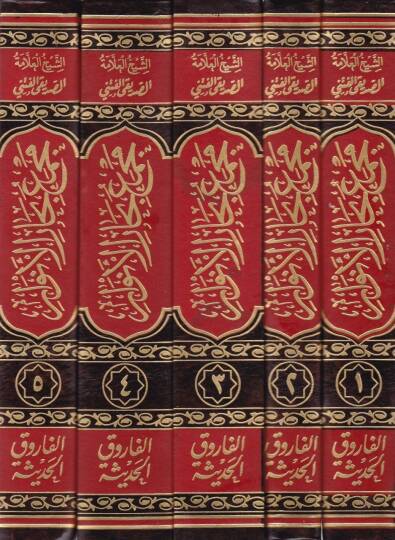 الشيخ العلامة
الصديقي الفتني
مجمع بحار الأنوار
١
الفاروق
الحديثة
الشيخ العلامة
الصديقي الفتني
مجمع بحار الأنوار
٢
الفاروق
الحديثة
الشيخ العلامة
الصديقي الفتني
مجمع بحار الأنوار
٣
الفاروق
الحديثة
الشيخ العلامة
الصديقي الفتني
مجمع بحار الأنوار
٤
الفاروق
الحديثة
الشيخ العلامة
الصديقي الفتني
مجمع بحار الأنوار
٥
الفاروق
الحديثة